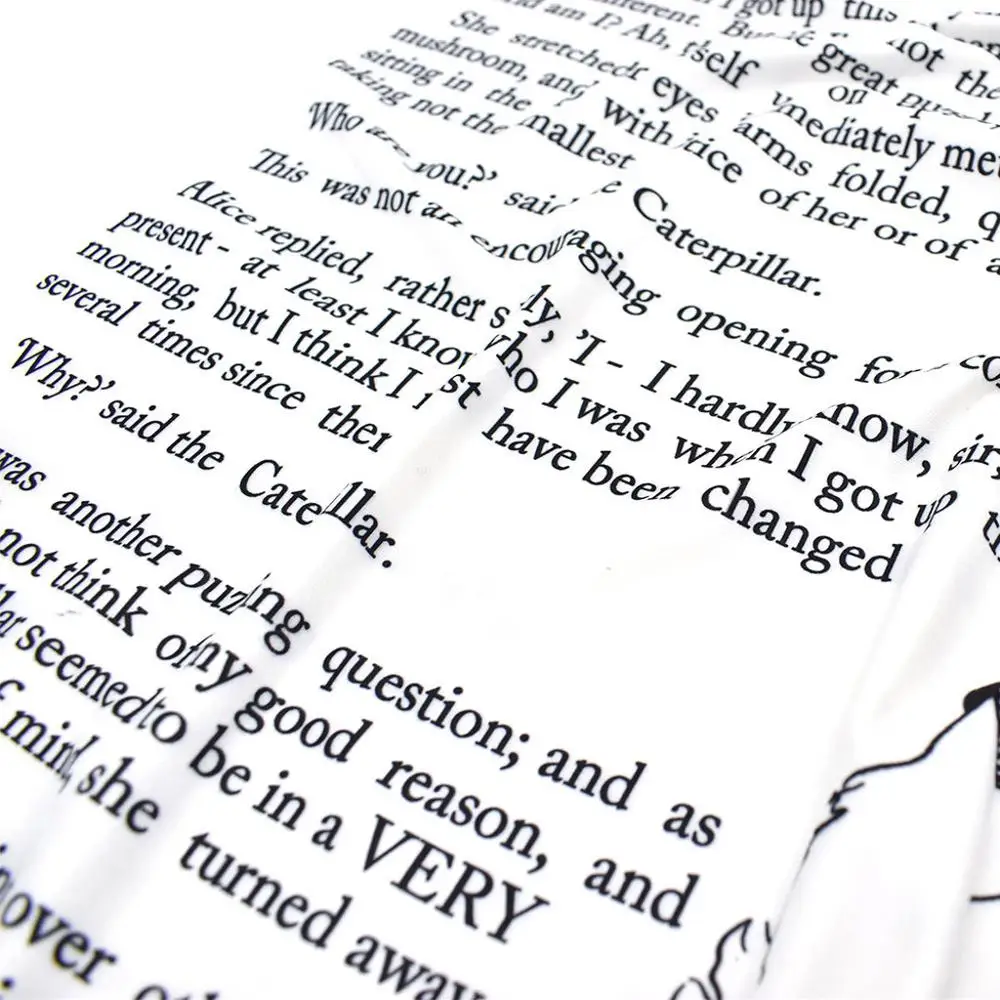 I got up this
different. But not the
and am I? Ah, great
She stretched itself on
mushroom, and eyes immediately met
sitting in the with arms folded,
taking not the smallest notice of her or of
'Who are you?' said the Caterpillar.
This was not an encouraging opening for
Alice replied, rather shyly, 'I - I hardly know, sir,
present - at least I know who I was when I got up
morning, but I think I must have been changed
several times since then
'Why?' said the Caterpillar.
was another puzzling question; and as
not think of any good reason, and
seemed to be in a VERY
of mind, she turned away
over